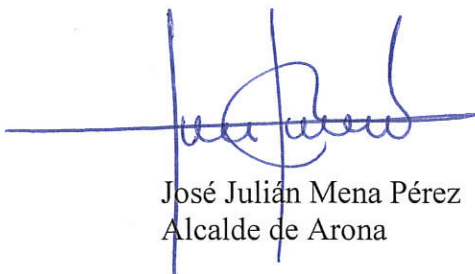 José Julián Mena Pérez
Alcalde de Arona